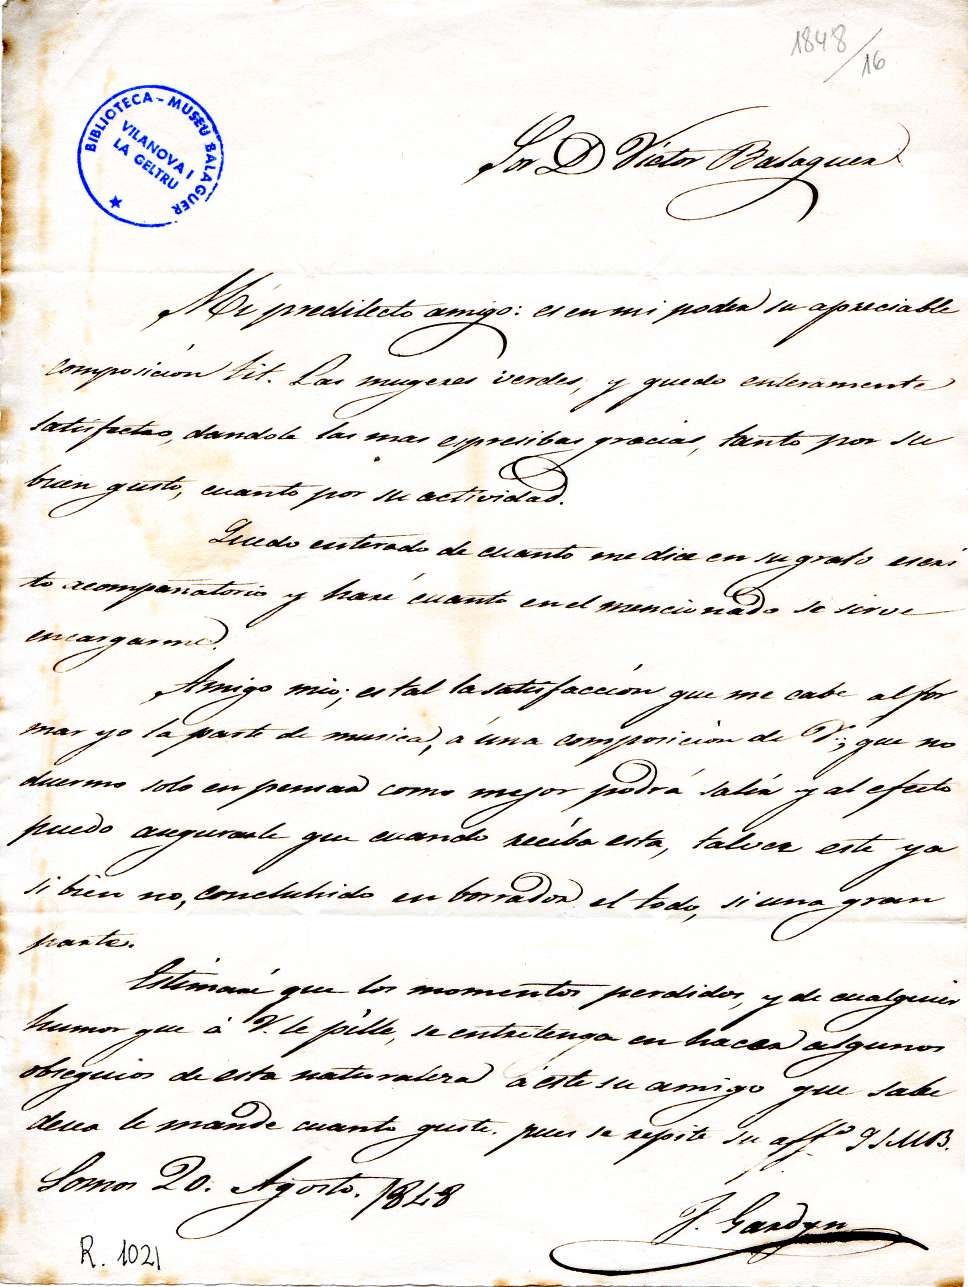 1848/16
BIBLIOTECA - MUSEU BALAGUER
VILANOVA I
LA GELTRU
Sor D Victor Balaguer
Mi predilecto amigo: es en mi poder su apreciable
composición tit. Las mugeres verdes, y quedo enteramente
satisfecho, dandole las mas espresibas gracias, tanto por su
buen gusto, cuanto por su actividad.
Quedo enterado de cuanto me dice en su grato escri
to acompañatorio y haré cuanto en el mencionado se sirve
encargarme.
Amigo mio; es tal la satisfacción que me cabe al for
mar yo la parte de musica, á una composición de V.; que no
duermo solo en pensar como mejor podrá salir y al efecto
puedo asegurarle que cuando reciba esta, talvez esté ya
si bien no, concluhido en borrador el todo, si una gran
parte.
Estimaré que los momentos perdidos, y de cualquier
humor que á V. le pille, se entretenga en hacer algunos
obsequios de esta naturaleza á este su amigo que sabe
desea le mande cuanto guste. pues se repite su affmo Q S M B.
Somos 20. Agosto. 1848
J. Gardyn
R. 1021